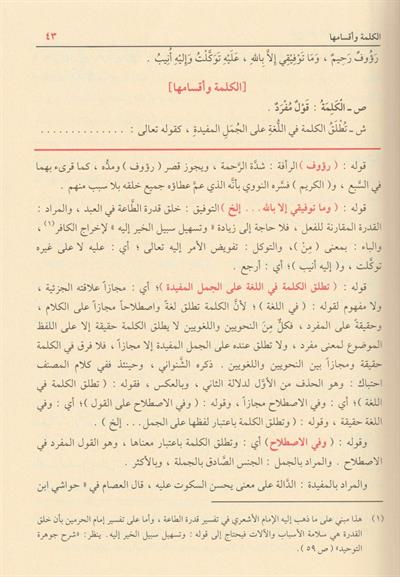 الكلمة وأقسامها ٤٣
رَؤُوفٌ رَحِيمٌ ، وَمَا تَوْفِيقِي إِلاَّ بِاللهِ ، عَلَيْهِ تَوَكَّلْتُ وَإِلَيْهِ أُنِيبُ .
[الكلمة وأقسامها]
ص ـ الْكَلِمَةُ : قَوْلٌ مُفْرَدٌ .
ش ـ تُطْلَقُ الكلمة في اللُّغَةِ على الجُمَلِ المفيدةِ ، كقوله تعالى : . . . . . . . . . . . . . .
قوله : ( رؤوف ) الرأفة : شدَّة الرَّحمة ، ويجوز قصر ( رؤوف ) ومدُّه ، كما قرىء بهما
في السَّبع ، و( الكريم ) فسَّره النووي بأنَّه الذي عمَّ عطاؤه جميع خلقه بلا سبب منهم .
قوله : ( وما توفيقي إلا بالله... إلخ ) التوفيق : خلق قدرة الطَّاعة في العبد ، والمراد :
القدرة المقارنة للفعل ، فلا حاجة إلى زيادة « وتسهيل سبيل الخير إليه » لإخراج الكافر(١) ،
والباء : بمعنى ( مِنْ )، والتوكل : تفويض الأمر إليه تعالى ؛ أي : عليه لا على غيره
توكَّلت ، و( إليه أنيب )؛ أي : أرجع .
قوله : ( تطلق الكلمة في اللغة على الجمل المفيدة )؛ أي : مجازاً علاقته الجزئية ،
ولا مفهوم لقوله : ( في اللغة )؛ لأنَّ الكلمة تطلق لغةً واصطلاحاً مجازاً على الكلام ،
وحقيقةً على المفرد ، فكلٌّ مِنَ النحويين واللغويين لا يطلق الكلمة حقيقة إلا على اللفظ
الموضوع لمعنى مفرد ، ولا تطلق عنده على الجمل المفيدة إلا مجازاً ، فلا فرق في الكلمة
حقيقة ومجازاً بين النحويين واللغويين . ذكره الشَّنواني ، وحينئذ ففي كلام المصنف
احتباك : وهو الحذف من الأوَّل لدلالة الثاني ، وبالعكس ، فقوله : ( تطلق الكلمة في
اللغة )؛ أي : وفي الاصطلاح مجازاً ، وقوله : ( وفي الاصطلاح على القول )؛ أي : وفي
اللغة حقيقة ، وقوله : ( وتطلق الكلمة باعتبار لفظها على الجمل... إلخ ) .
وقوله : ( وفي الاصطلاح ) أي : وتطلق الكلمة باعتبار معناها ، وهو القول المفرد في
الاصطلاح . والمراد بالجمل : الجنس الصَّادق بالجملة ، وبالأكثر .
والمراد بالمفيدة : الدَّالة على معنى يحسن السكوت عليه ، قال العصام في « حواشي ابن
(١) هذا مبني على ما ذهب إليه الإمام الأشعري في تفسير قدرة الطاعة ، وأما على تفسير إمام الحرمين بأن خلق
القدرة هي سلامة الأسباب والآلات فيحتاج إلى قوله : وتسهيل سبيل الخير إليه. ينظر: «شرح جوهرة
التوحيد» ( ص ٥٩ ) .